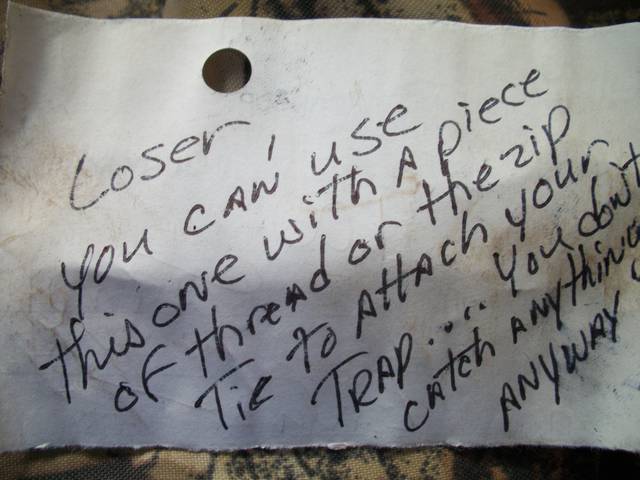 Loser,
you can use
this one with a piece
of thread or the zip
Tie to attach your
Trap.... you don't
catch anything
anyway